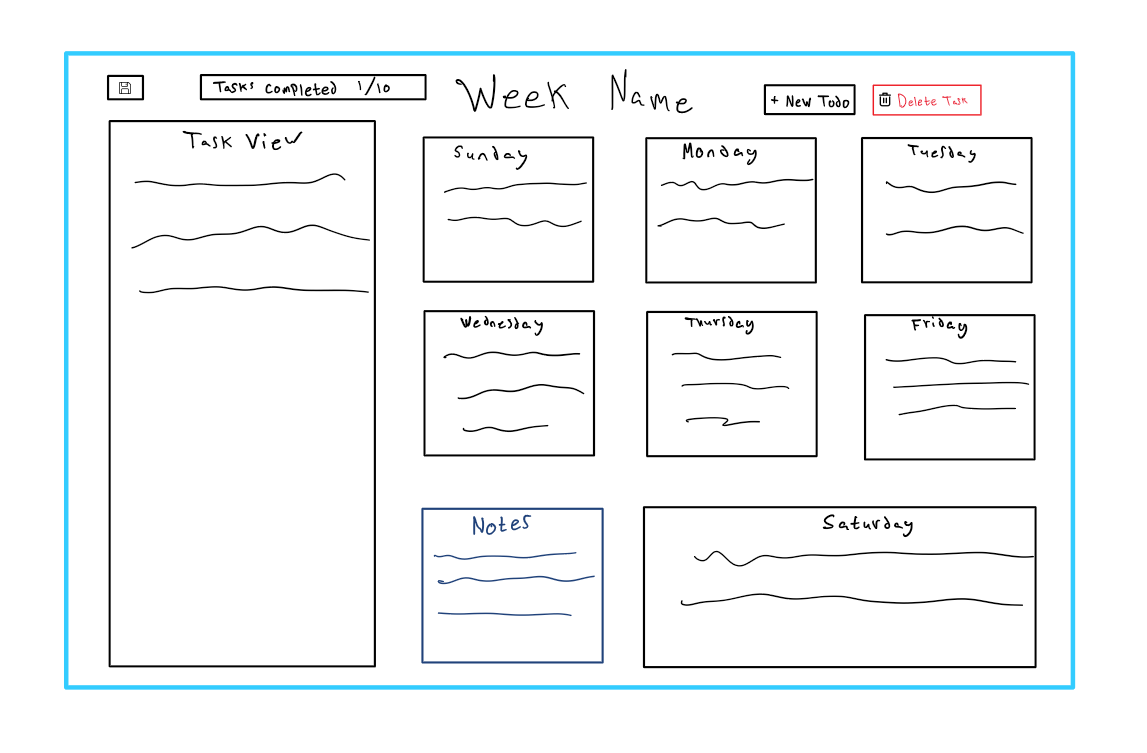 Tasks completed 1/10
Week Name
+ New Todo
Delete Task
Task View
Sunday
Monday
Tuesday
Wednesday
Thursday
Friday
Notes
Saturday